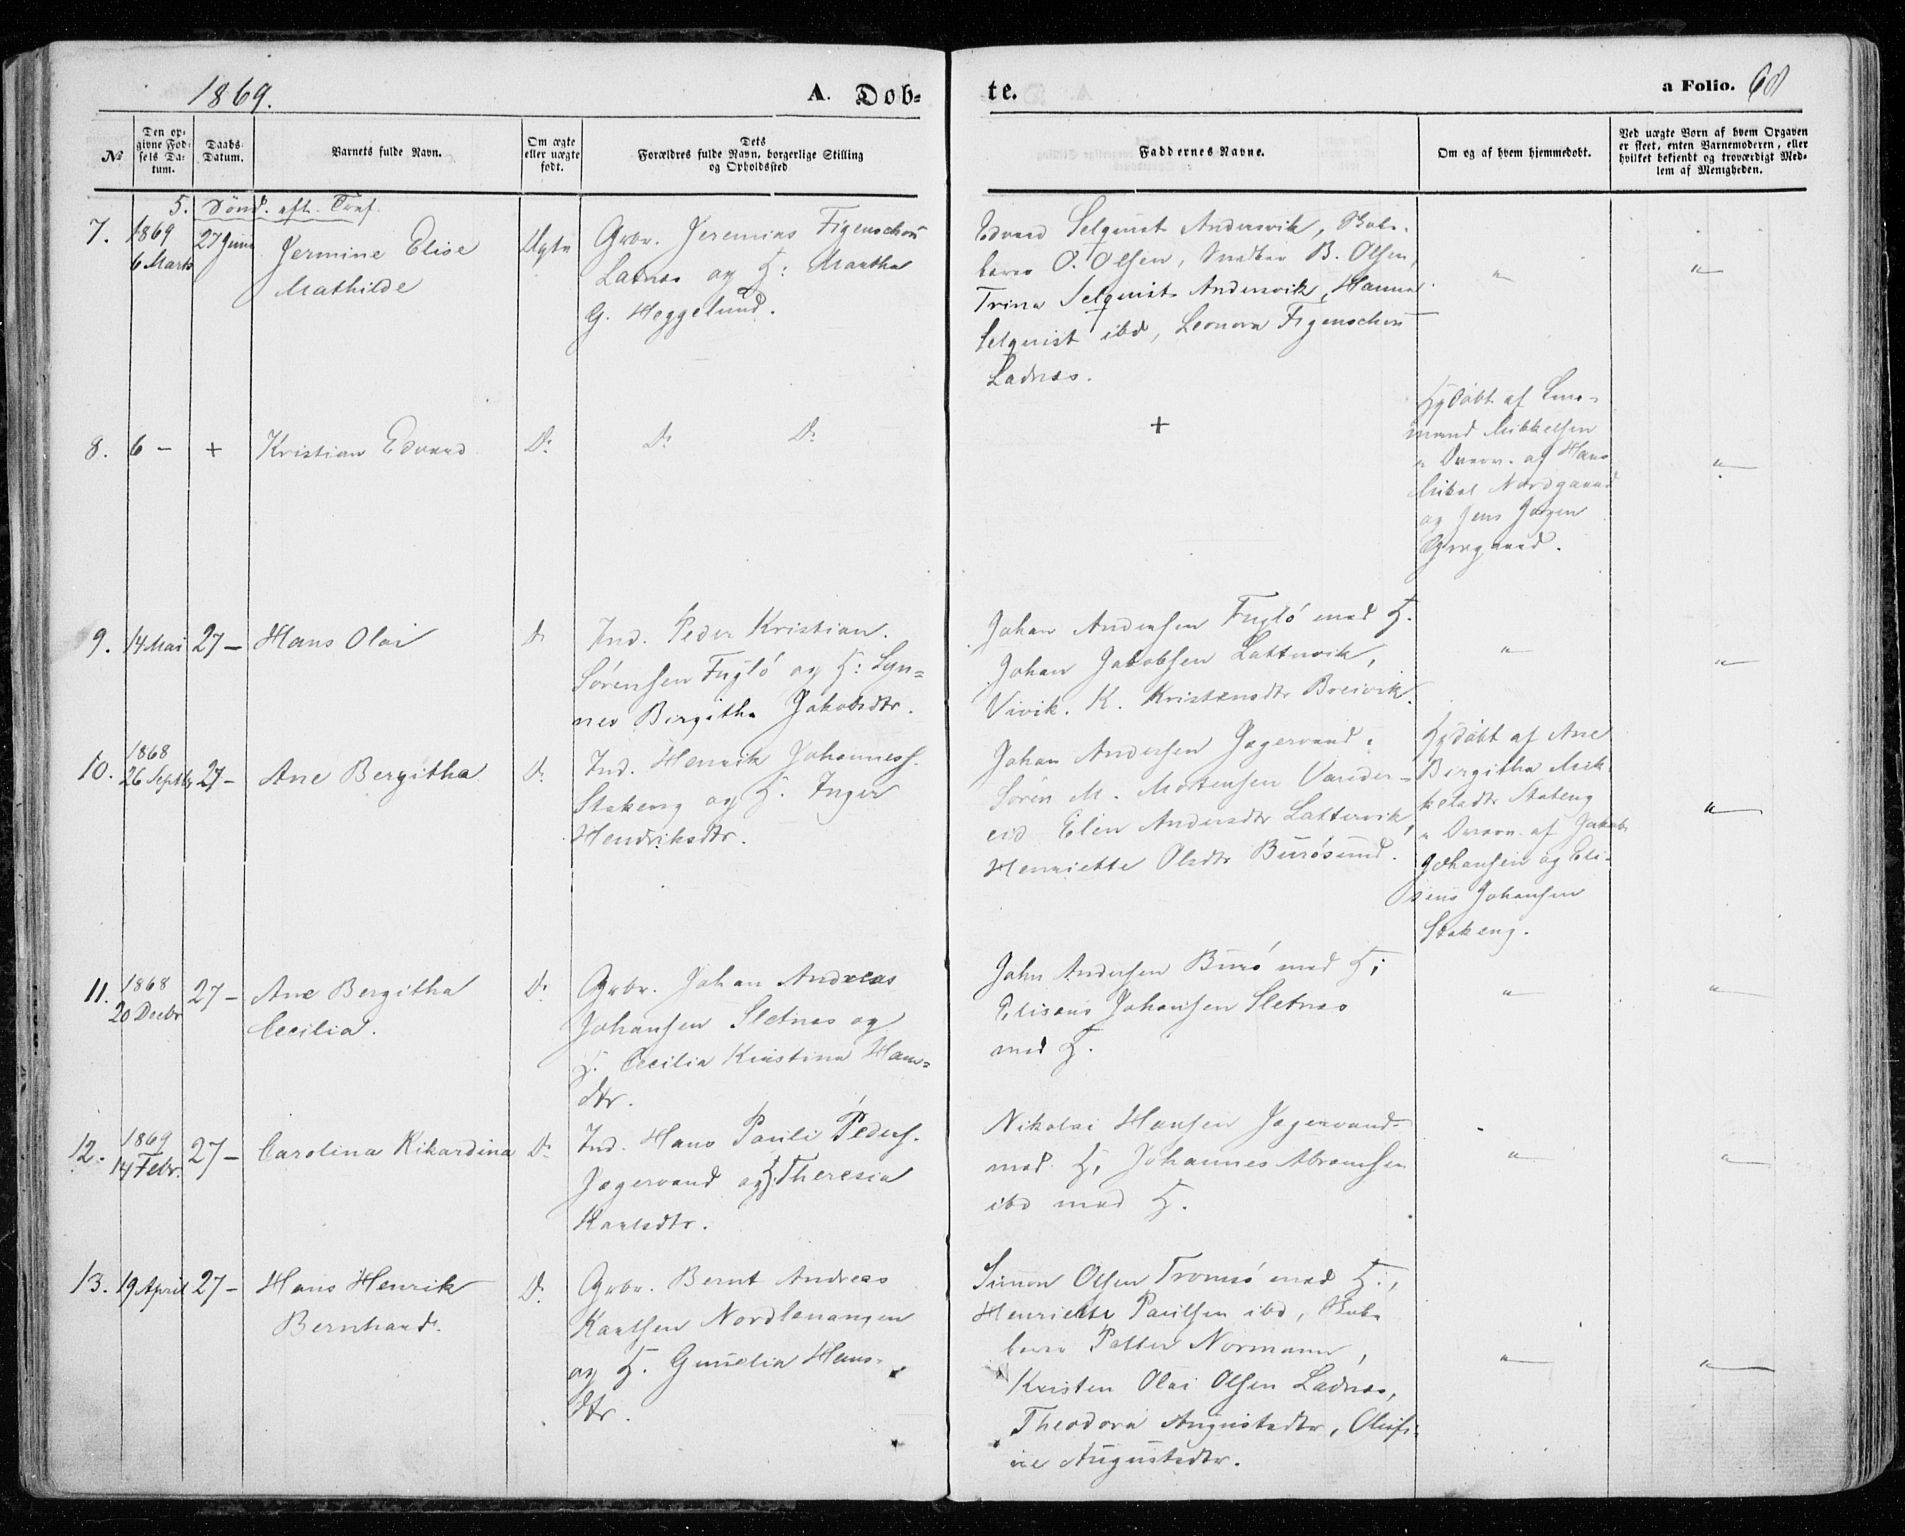 1869.
A. Dob-
te.
a Folio. 68
№
Den op-
givne Fød-
sels Da-
tum.
Daabs
Datum.
Barnets fulde Navn.
Om ægte
eller uægte
født.
Dets
Forældres fulde Navn, borgerlige Stilling
og Opholdssted
Faddernes Navne.
Om og af hvem hjemmedøbt.
Ved uægte Børn af hvem Opgaven
er skeet, enten Barnemoderen, eller
hvilket bekjendt og troværdigt Med-
lem af Menigheden.
5. Sønd. eft. Tref.
7.
1869
6 Marts
27 Juni
Jermine Elise
Mathilde
Ægte
Grbr. Jeremias Figenschou
Ladnes og H: Martha
G. Heggelund.
Edvard Selqvist Andersvik,
O. Olsen, B. Olsen,
Trina Selqvist Andersvik, Hanna
Selqvist ibd, Leonora Figenschou
Ladnes.
"
"
8.
6 –
+
Kristian Edvard
Do
Do Do
+
Hjdøbt af
Mikkelsen
af Hans
Mikal Nordgaard
og Jens Jørgen
"
9.
14 Mai
27 –
Hans Olai
Do
Ind. Peder Kristian
Sørensen Fuglø og H: Lyn-
nes Birgitha Jakobsdtr.
Johan Andersen Fuglø med H.
Johan Jakobsen Lattervik,
Vivik. K. Kristensdtr Breivik.
"
"
10.
1868
26 Septbr
27 –
Ane Bergitha
Do
Ind. Henrik Johanness.
Stakeng og H. Inger
Hendriksdtr.
Johan Andersen Jægervand.
Søren M. Mortensen Vareder-
eid Elen Andersdtr Lattervik,
Henriette Olsdtr Burøsund.
Hjdøbt af Ane
Birgitha Mik-
kelsdtr Stakeng
af Jakob
Johansen og Eli-
seus Johansen
Stakeng.
"
11.
1868
20 Decbr
27 –
Ane Bergitha
Cecilia.
Do
Grbr. Johan Andreas
Johansen Sletnes og
H. Cecilia Kristina Hans-
dtr.
John Andersen Burø med H;
Eliseus Johansen Sletnes
med H.
"
"
12.
1869
14 Febr.
27 –
Carolina Rikardina
Do
Ind. Hans Pauli Peders.
Jægervand og H. Theresia
Karlsdtr.
Nikolai Hansen Jægervand
med H, Johannes Abramsen
ibd med H.
"
"
13.
19 April
27 –
Hans Henrik
Bernhard.
Do
Grbr. Bernt Andreas
Karlsen Nordlenangen
og H. Gunelia Hans-
dtr.
Simon Olsen Tromsø med H.,
Henriette Paulsen ibd,
Petter Normann,
Kristen Olai Olsen Ladnes,
Theodora Augustsdtr, Olufi-
ne Augustsdtr.
"
"